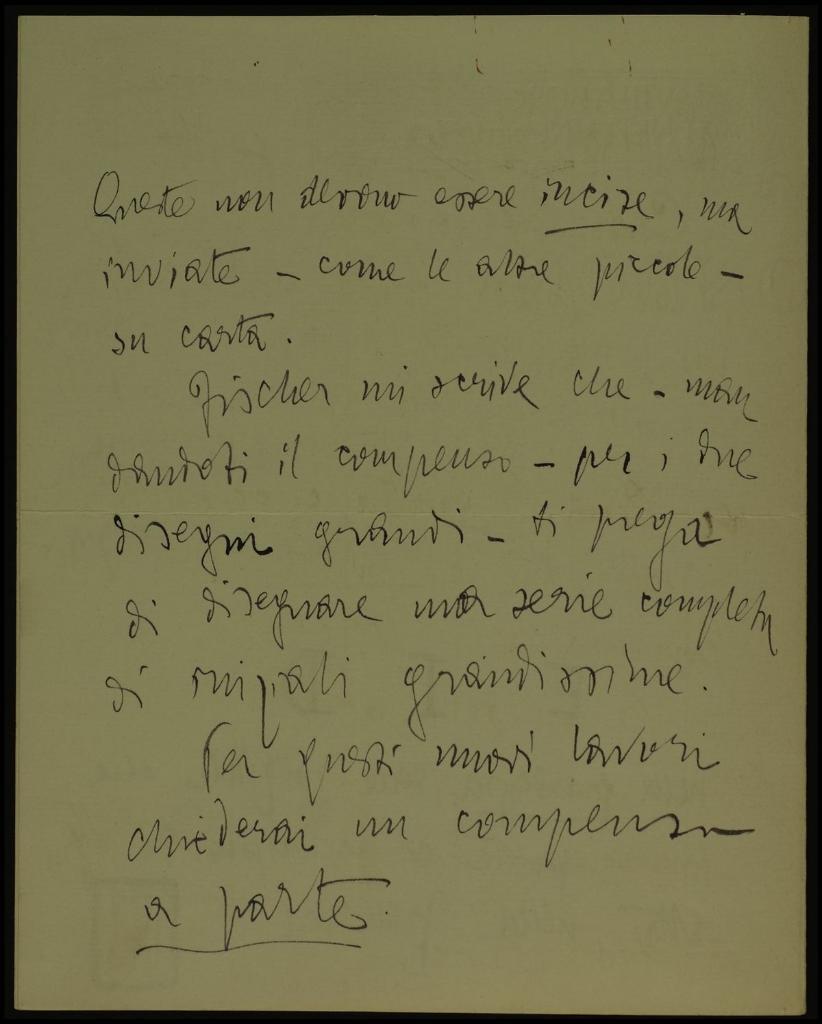 Queste non devono essere incise, ma
inviate – come le altre piccole –
su carta.
Fischer mi scrive che – man
dandoti il compenso – per i due
disegni grandi – ti prega
di disegnare una serie completa
di iniziali grandissime.
Per questi nuovi lavori
chiederai un compenso
a parte.